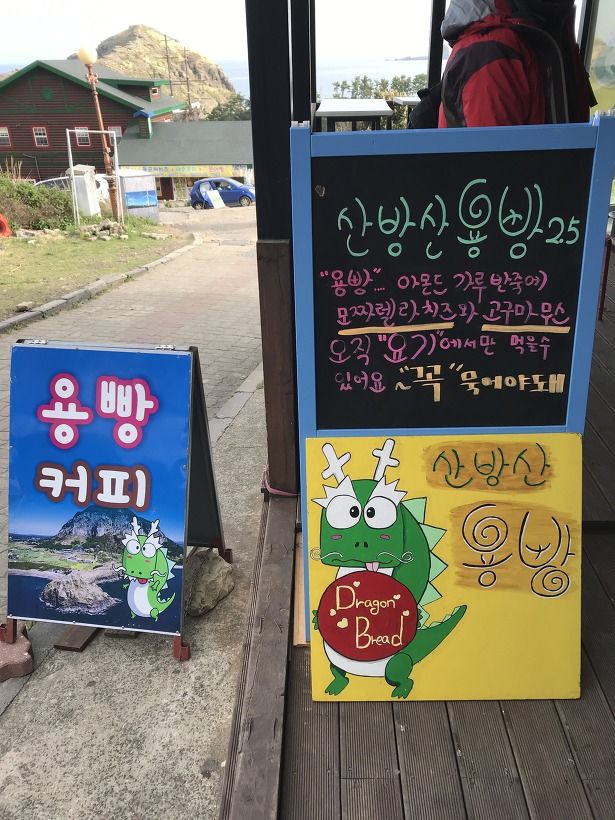 용빵
커피
산방산용빵 2.5
"용빵"... 아몬드 가루 반죽에
모짜렐라치즈와 고구마무스
오직 "요기"에서만 먹을수
있어요 ~"꼭" 묵어야돼
산방산
용빵
Dragon
Bread